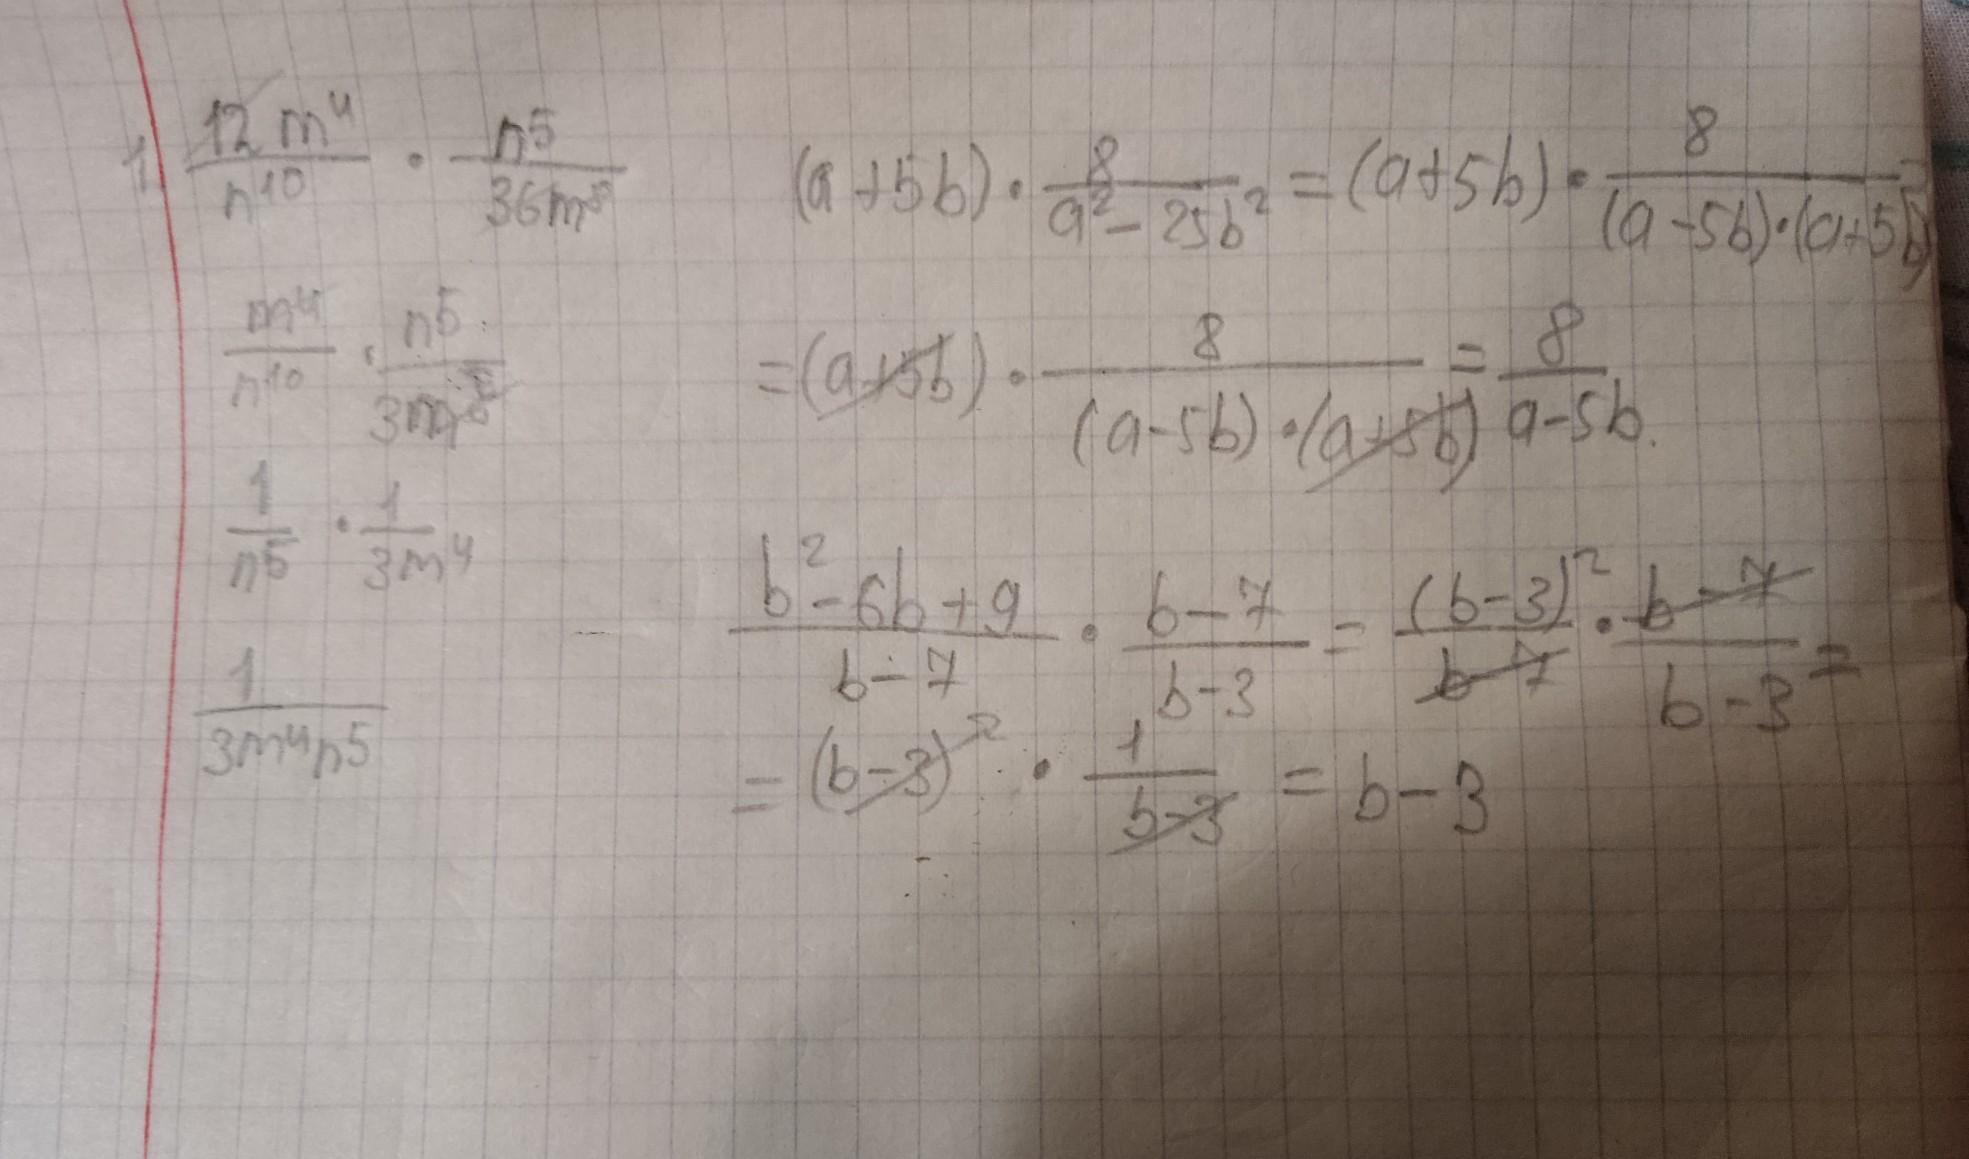 1. 12m⁴/n¹⁰ · n⁵/36m⁸
m⁴/n¹⁰ · n⁵/3m⁸
1/n⁵ · 1/3m⁴
1/3m⁴n⁵
(a+5b) · 8/a²-25b² = (a+5b) · 8/(a-5b)·(a+5b)
=(a+5b) · 8/(a-5b)·(a+5b) = 8/a-5b.
b²-6b+9/b-7 · b-7/b-3 = (b-3)²/b-7 · b-7/b-3 =
= (b-3)² · 1/b-3 = b-3